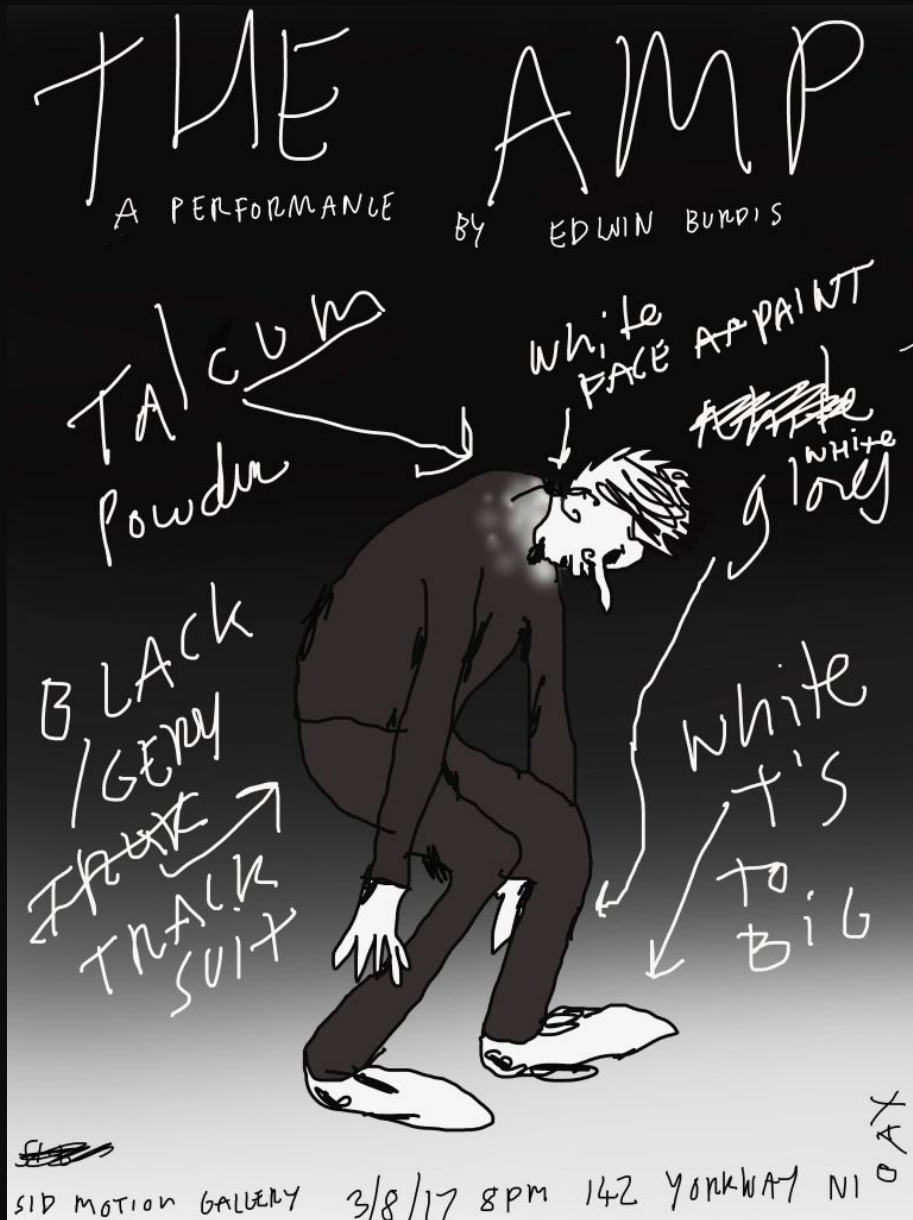 THE AMP
A PERFORMANCE BY EDWIN BURDIS
TAlcum
Powder
white
FACE PAINT
WHite
gloves
BLACK
/GERY
TRACK
SUIT
White
T'S
To
BiG
SID MOTION GALLERY 3/8/17 8PM 142 YORKWAY N1 0AX